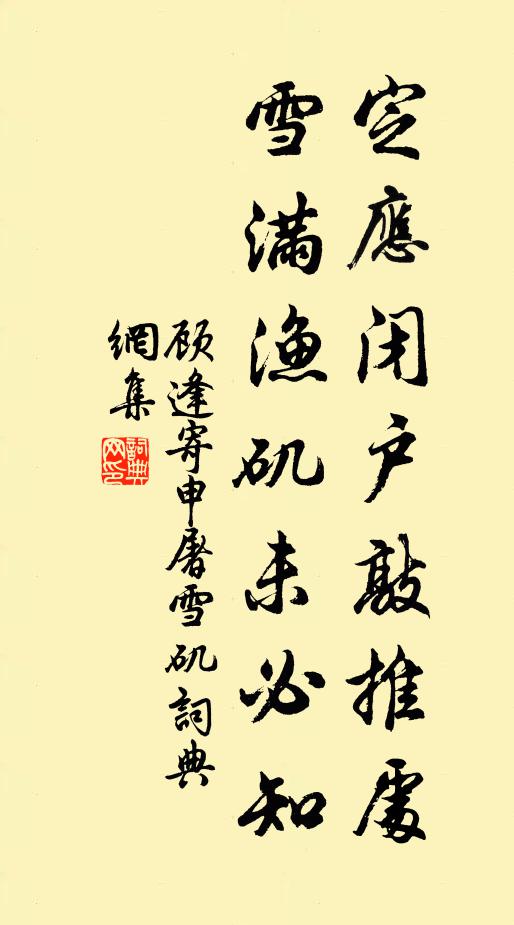 定應閉户敲推處
雪滿漁矶未必知
顾逢寄申屠雪矶詞典
網集
詞典网印